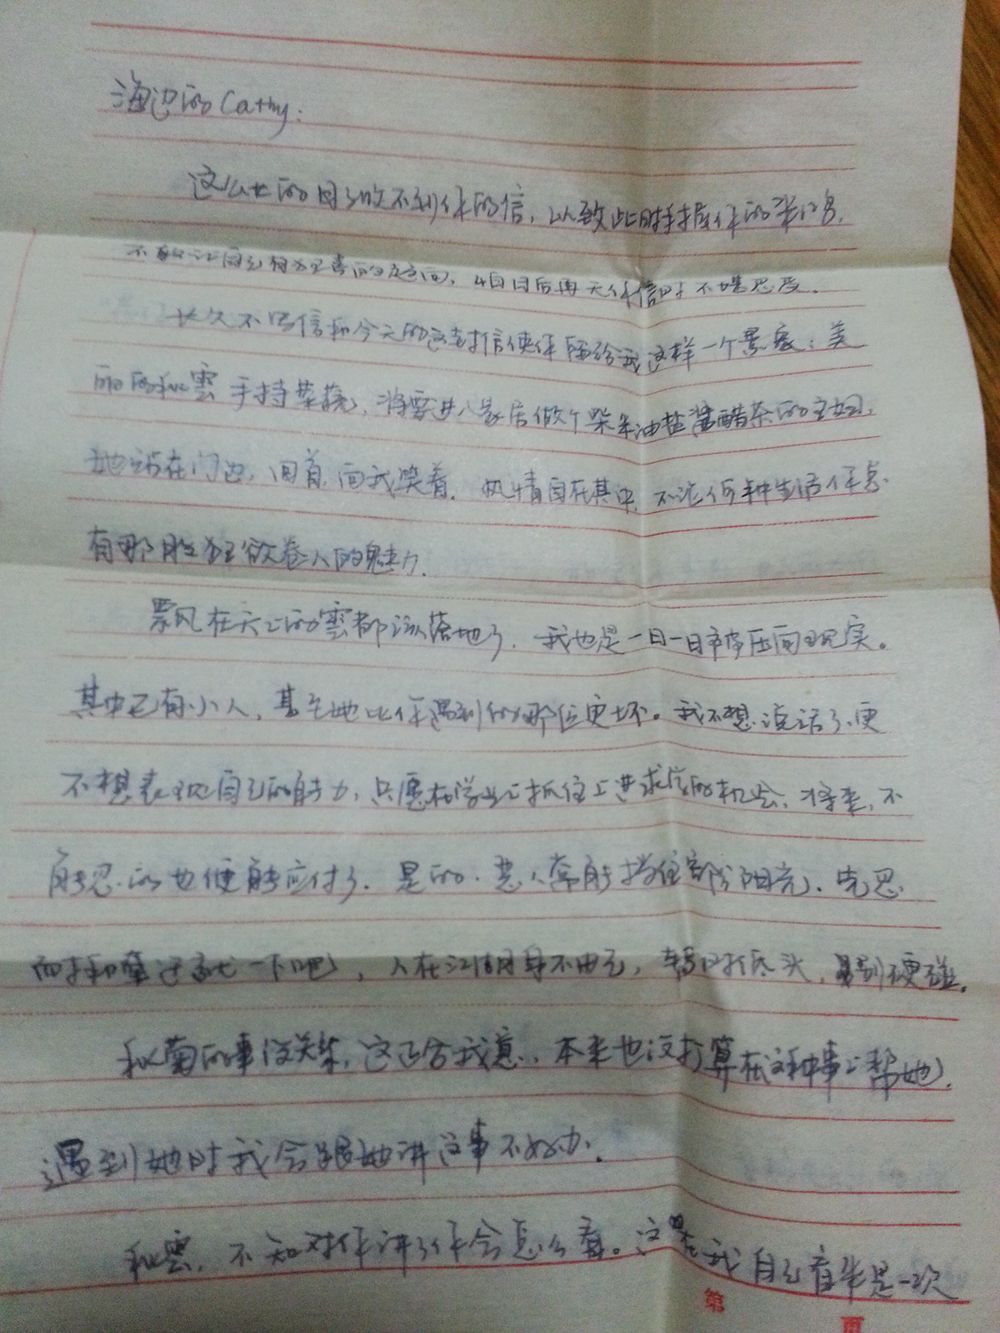 海边的Cathy:
这么长的日子收不到你的信，以致此时手握你的
长久不写信和今天的这封信使你留给我这样一个景象：美
丽的秋雲手持菜篮，将要进入家居做个柴米油盐酱醋茶的主妇，
她站在门边，回首，向我笑着，风情自在其中，不论何种生活你总
有那股狂欲卷人的魅力。
飘风在天上的雲都该落地了，我也是一日一日被压向现实。
其中已有小人，甚至她比你遇到的那位更坏。我不想说话了，更
不想表现自己的能力，只愿在学业上抓住上进求学的机会，将来，不
能忍的也便能应付了。是的，恶人常能挡住部分阳光，先忍
一下吧，人在江湖身不由己，暂时低头，别硬碰。
秋菊的事没关系，这正合我意，本来也没打算在这种事上帮她，
遇到她时我会跟她讲这事不好办。
秋雲，不知对你讲了你会怎么看。这在我自己看来是一次
第 页